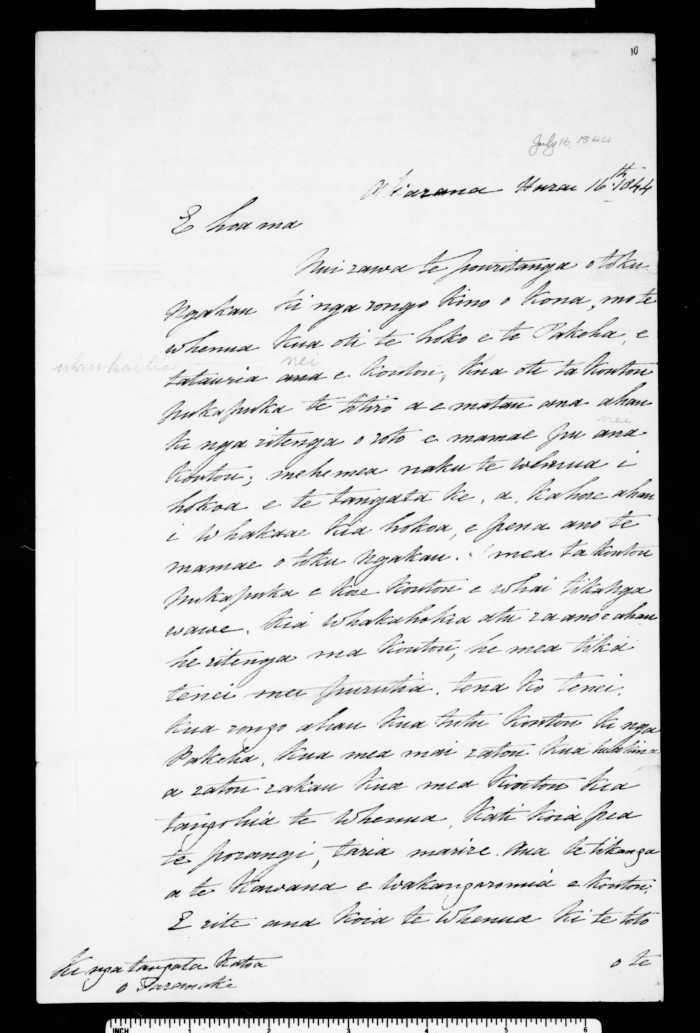 10
July 16, 1844
Akarana Hurai 16th 1844
E hoa ma
Nui rawa te pouritanga o toku
Ngakau ki nga rongo kino o kona, mo te
whenua kua oti te hoko e te Pakeha, e
whawhaitia nei
tatauria ana e koutou, kua oti ta koutou
pukapuka te titiro a e matau ana ahau
nei
ki nga ritenga o roto e mamae pu ana
koutou; mehemea naku te whenua i
hokoa e te tangata ke, a, kahore ahau
i whakaae kia hokoa, e pena ano te
mamae o toku Ngakau. I mea ta koutou
pukapuka e kore koutou e whai tikanga
wawe. Kia whakahokia atu ra ano e ahau
he ritenga ma koutou, he mea tika
tenei me puritia. tena ko tenei.
Kua rongo ahau kua tutu koutou ki nga
Pakeha, kua mea mai ratou kua
a ratou rakau kua mea koutou kia
tangohia te whenua. Kati koia pea
te porangi, taria marire. Aua te tikanga
a te Kawana e wakangaromia e koutou.
E rite ana koia te whenua ki te toto
o te
Ki nga tangata katoa
o Taranaki
INCH 1 2 3 4 5 6